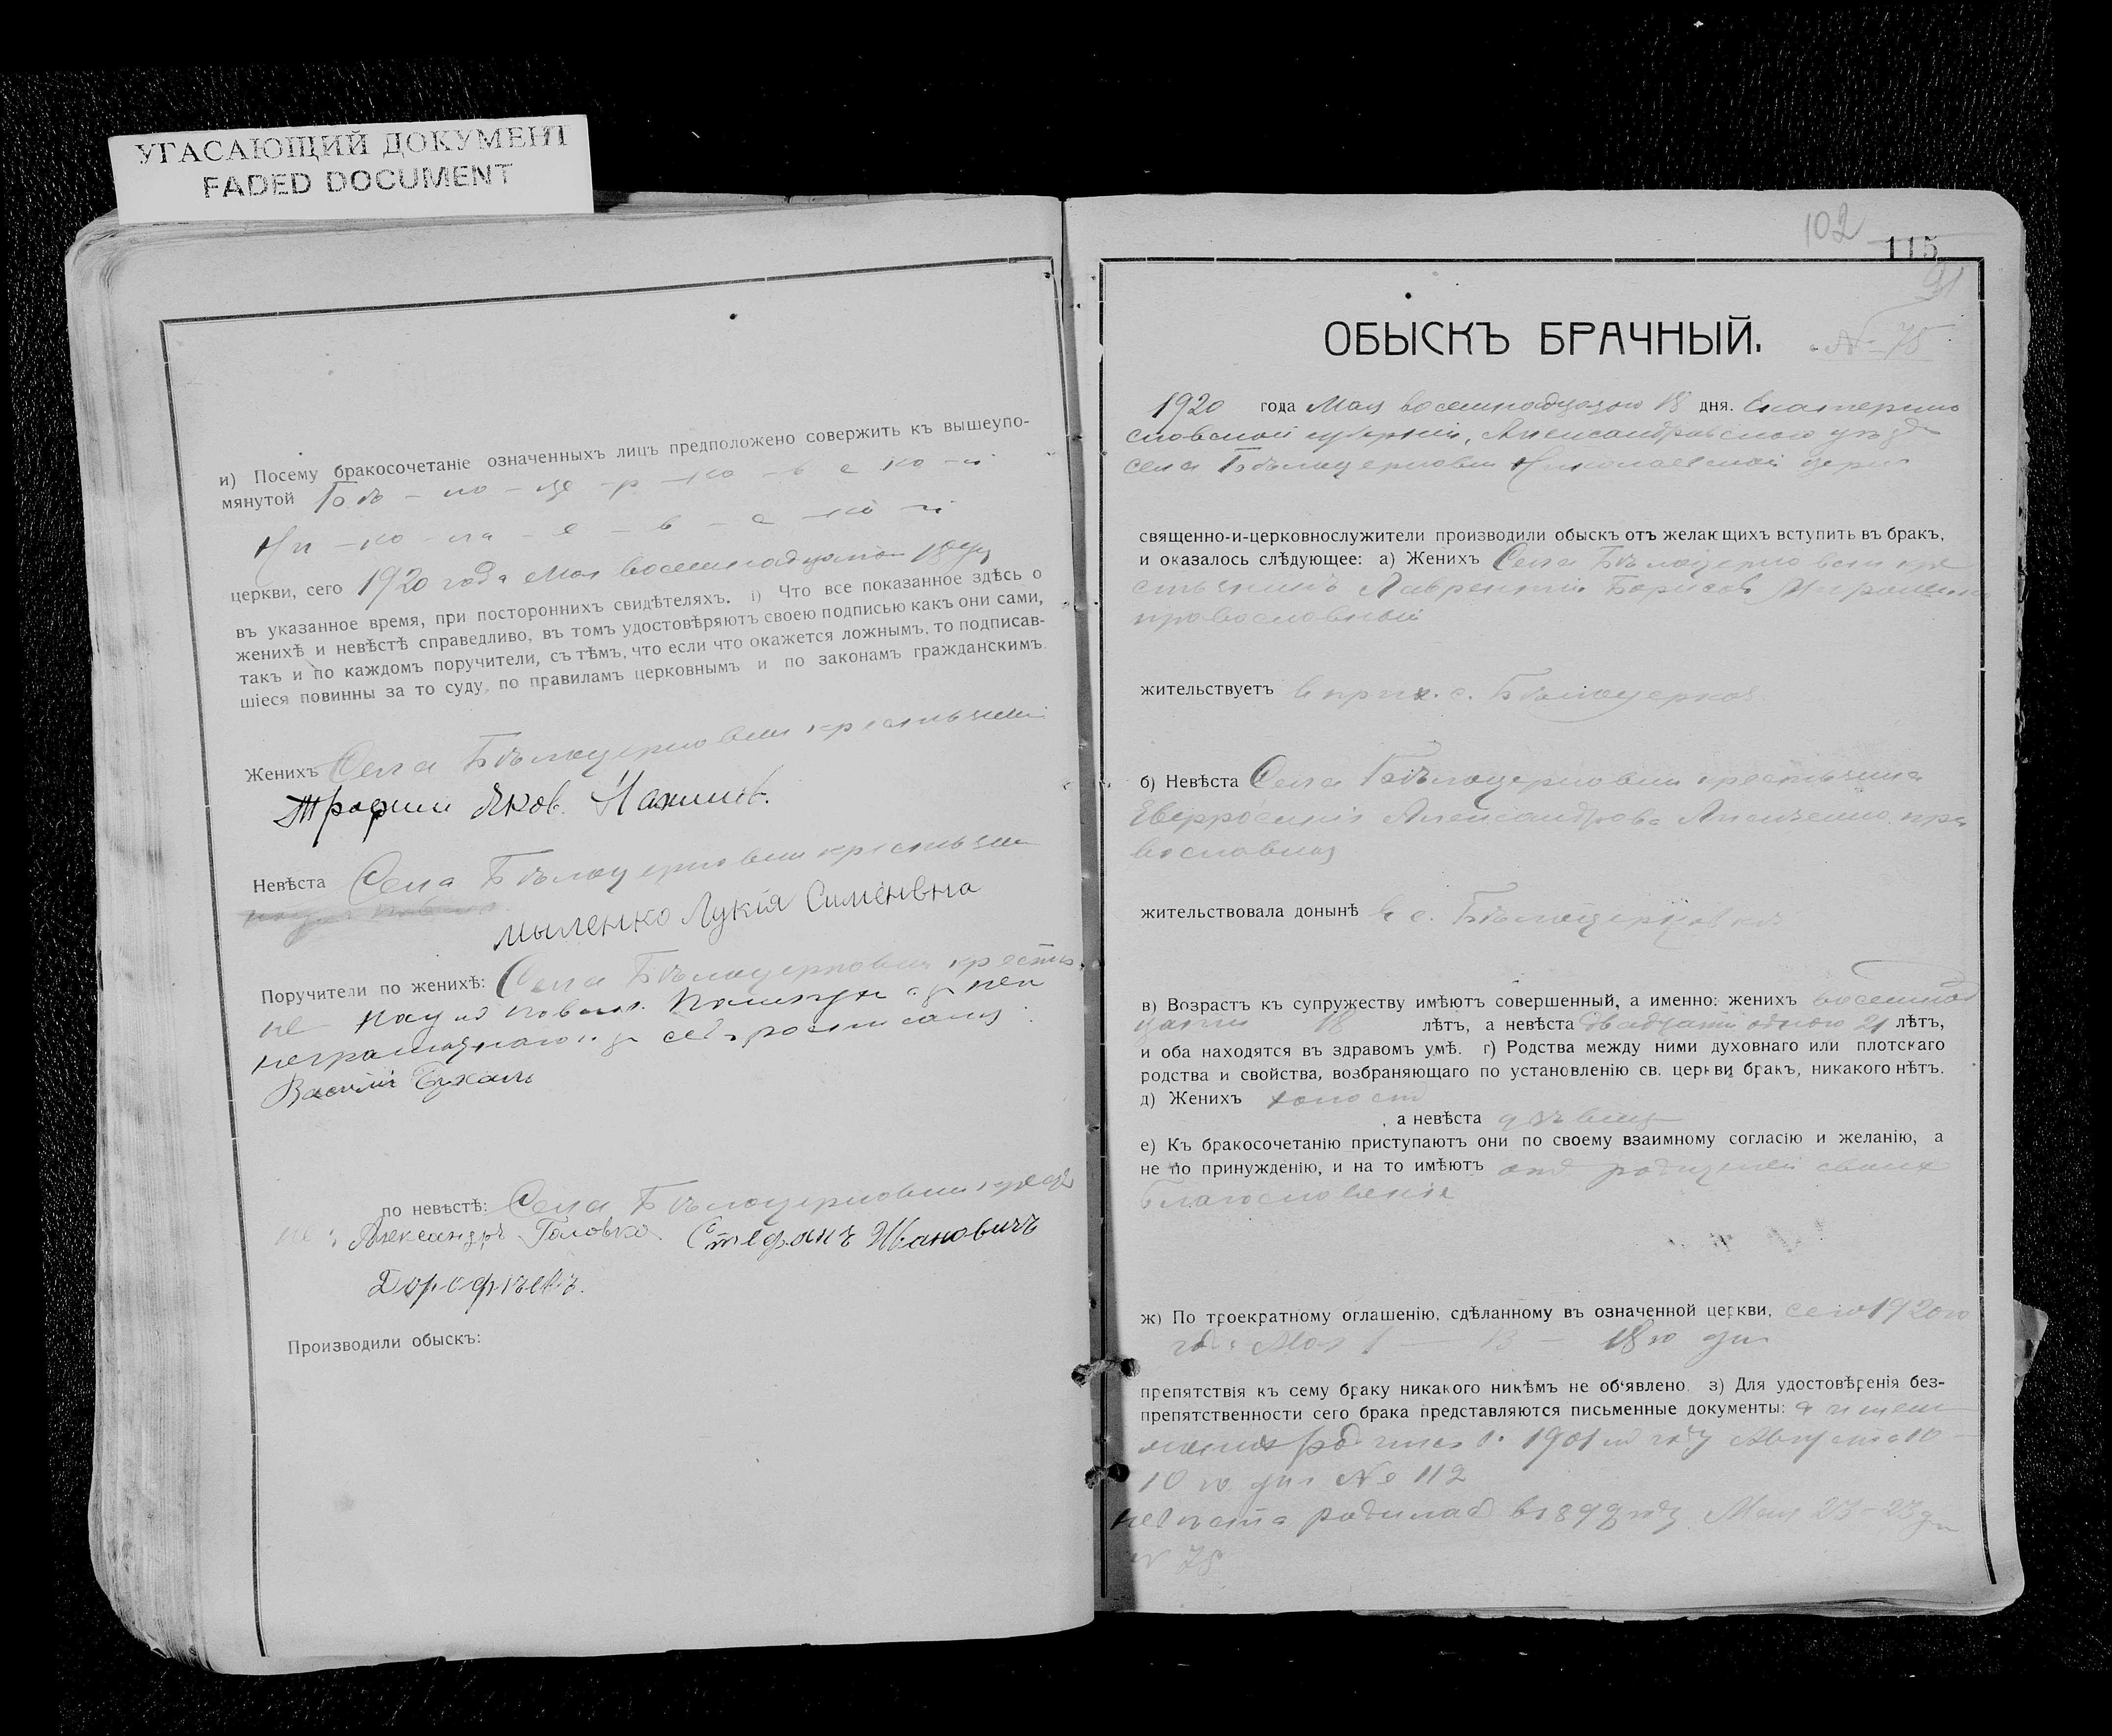 УГАСАЮЩИЙ ДОКУМЕНТ
FADED DOCUMENT
и) Посему бракосочетаніе означенныхъ лицъ предположено совержить къ вышеупо-
мянутой Бѣ - ло - це - р - ко - в с ко - й
Ни - ко - ла - е - в - с - ко - й
церкви, сего 1920 года Мая восемнадцатаго 18 дня
въ указанное время, при постороннихъ свидѣтеляхъ. і) Что все показанное здѣсь о
женихѣ и невѣстѣ справедливо, въ томъ удостовѣряютъ своею подписью какъ они сами,
такъ и по каждомъ поручители, съ тѣмъ, что если что окажется ложнымъ, то подписав-
шіеся повинны за то суду, по правиламъ церковнымъ и по законамъ гражданскимъ.
Женихъ Села Бѣлоцерковки крестьянин
Трофим Яков.
Невѣста Села Бѣлоцерковки крестьян
мыленко Лукія Сименвна
Поручители по женихѣ: Села Бѣлоцерковки крестья
не
неграмотнаго и за себя росписался
Василій
по невѣстѣ: Села Бѣлоцерковки крестья
не: Александръ Головко Стефанъ Ивановичъ
Дорофѣевъ.
Производили обыскъ:
102
115
91
ОБЫСКЪ БРАЧНЫЙ. № 75
1920 года Мая восемнадцатаго 18 дня. Екатерино
славской губерніи, Александровскаго уѣзда
села Бѣлоцерковки Николаевской церк
священно-и-церковнослужители производили обыскъ отъ желающихъ вступить въ бракъ,
и оказалось слѣдующее: а) Женихъ Села Бѣлоцерковки кре
стьянинъ Лаврентій Борисов
православный
жительствуетъ в прих. с. Бѣлоцерков
б) Невѣста Села Бѣлоцерковки крестьянка
Евфросинія Александрова пра
вославная
жительствовала донынѣ в с. Бѣлоцерковкѣ
в) Возрастъ къ супружеству имѣютъ совершенный, а именно: женихъ восемнад
цати 18 лѣтъ, а невѣста двадцати одного 21 лѣтъ,
и оба находятся въ здравомъ умѣ. г) Родства между ними духовнаго или плотскаго
родства и свойства, возбраняющаго по установленію св. церкви бракъ, никакого нѣтъ.
д) Женихъ холост
, а невѣста дѣвица
е) Къ бракосочетанію приступаютъ они по своему взаимному согласію и желанію, а
не по принужденію, и на то имѣютъ от родителей своих
благословеніе
ж) По троекратному оглашенію, сдѣланному въ означенной церкви, сего 1920 го
года Мая 1 — 13 — 18 го дня
препятствія къ сему браку никакого никѣмъ не об'явлено. з) Для удостовѣренія без-
препятственности сего брака представляются письменные документы:
родился в 1901 м году Августа 10 -
10 го дня № 112
невѣста родилась в 1899 году Мая 23 - 23 дн
№ 78